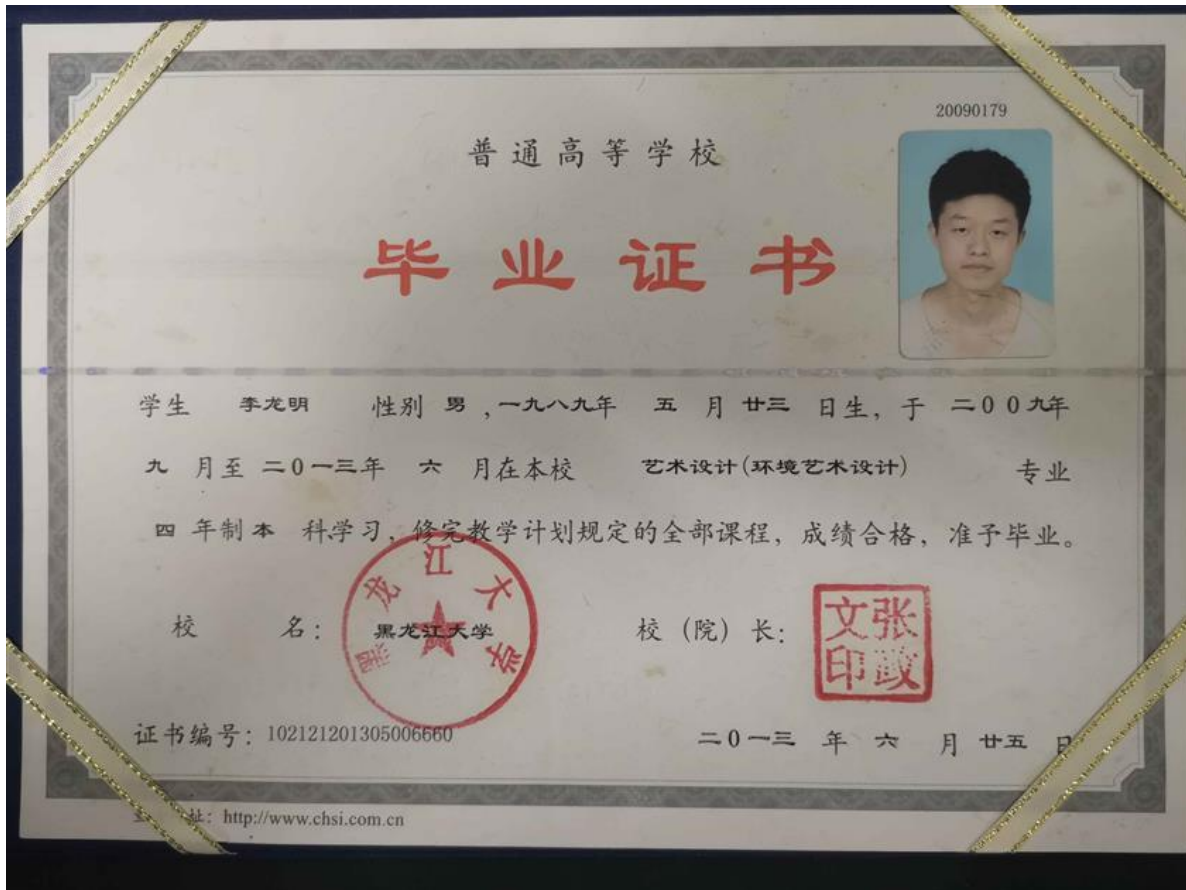 20090179
普通高等学校
毕业证书
学生 李龙明 性别 男 ,一九八九年 五 月 廿三 日生, 于 二00九年
九 月至 二0一三年 六 月在本校 艺术设计(环境艺术设计) 专业
四 年制 本 科学习, 修完教学计划规定的全部课程, 成绩合格, 准予毕业。
校 名: 黑龙江大学 校 (院) 长:
黑龙江大学
张政
文印
证书编号: 102121201305006660 二0一三 年 六 月 廿五 日
址: http://www.chsi.com.cn